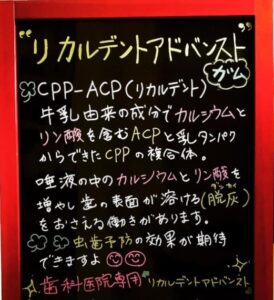 "リカルデントアドバンスト"
ガム
CPP-ACP(リカルデント)
牛乳由来の成分でカルシウムと
リン酸を含むACPと乳タンパク
からできたCPPの複合体。
唾液の中のカルシウムとリン酸を
増やし歯の表面が溶ける(脱灰)
ダッカイ
をおさえる働きがあります。
虫歯予防の効果が期待
できますよ
歯科医院専用 リカルデントアドバンスト